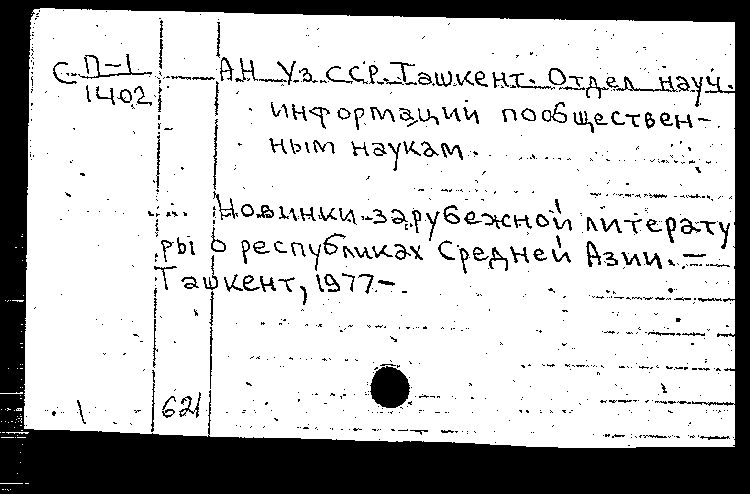 С П-1
1402
АН Уз ССР. Ташкент. Отдел науч.
информаций пообществен-
ным наукам.
Новинки зарубежной литерату
ры о республиках Средней Азии. —
Ташкент, 1977-.
621